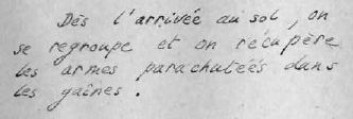 Dès l'arrivée au sol, on
se regroupe et on récupère
les armes parachutéés dans
les gaînes.